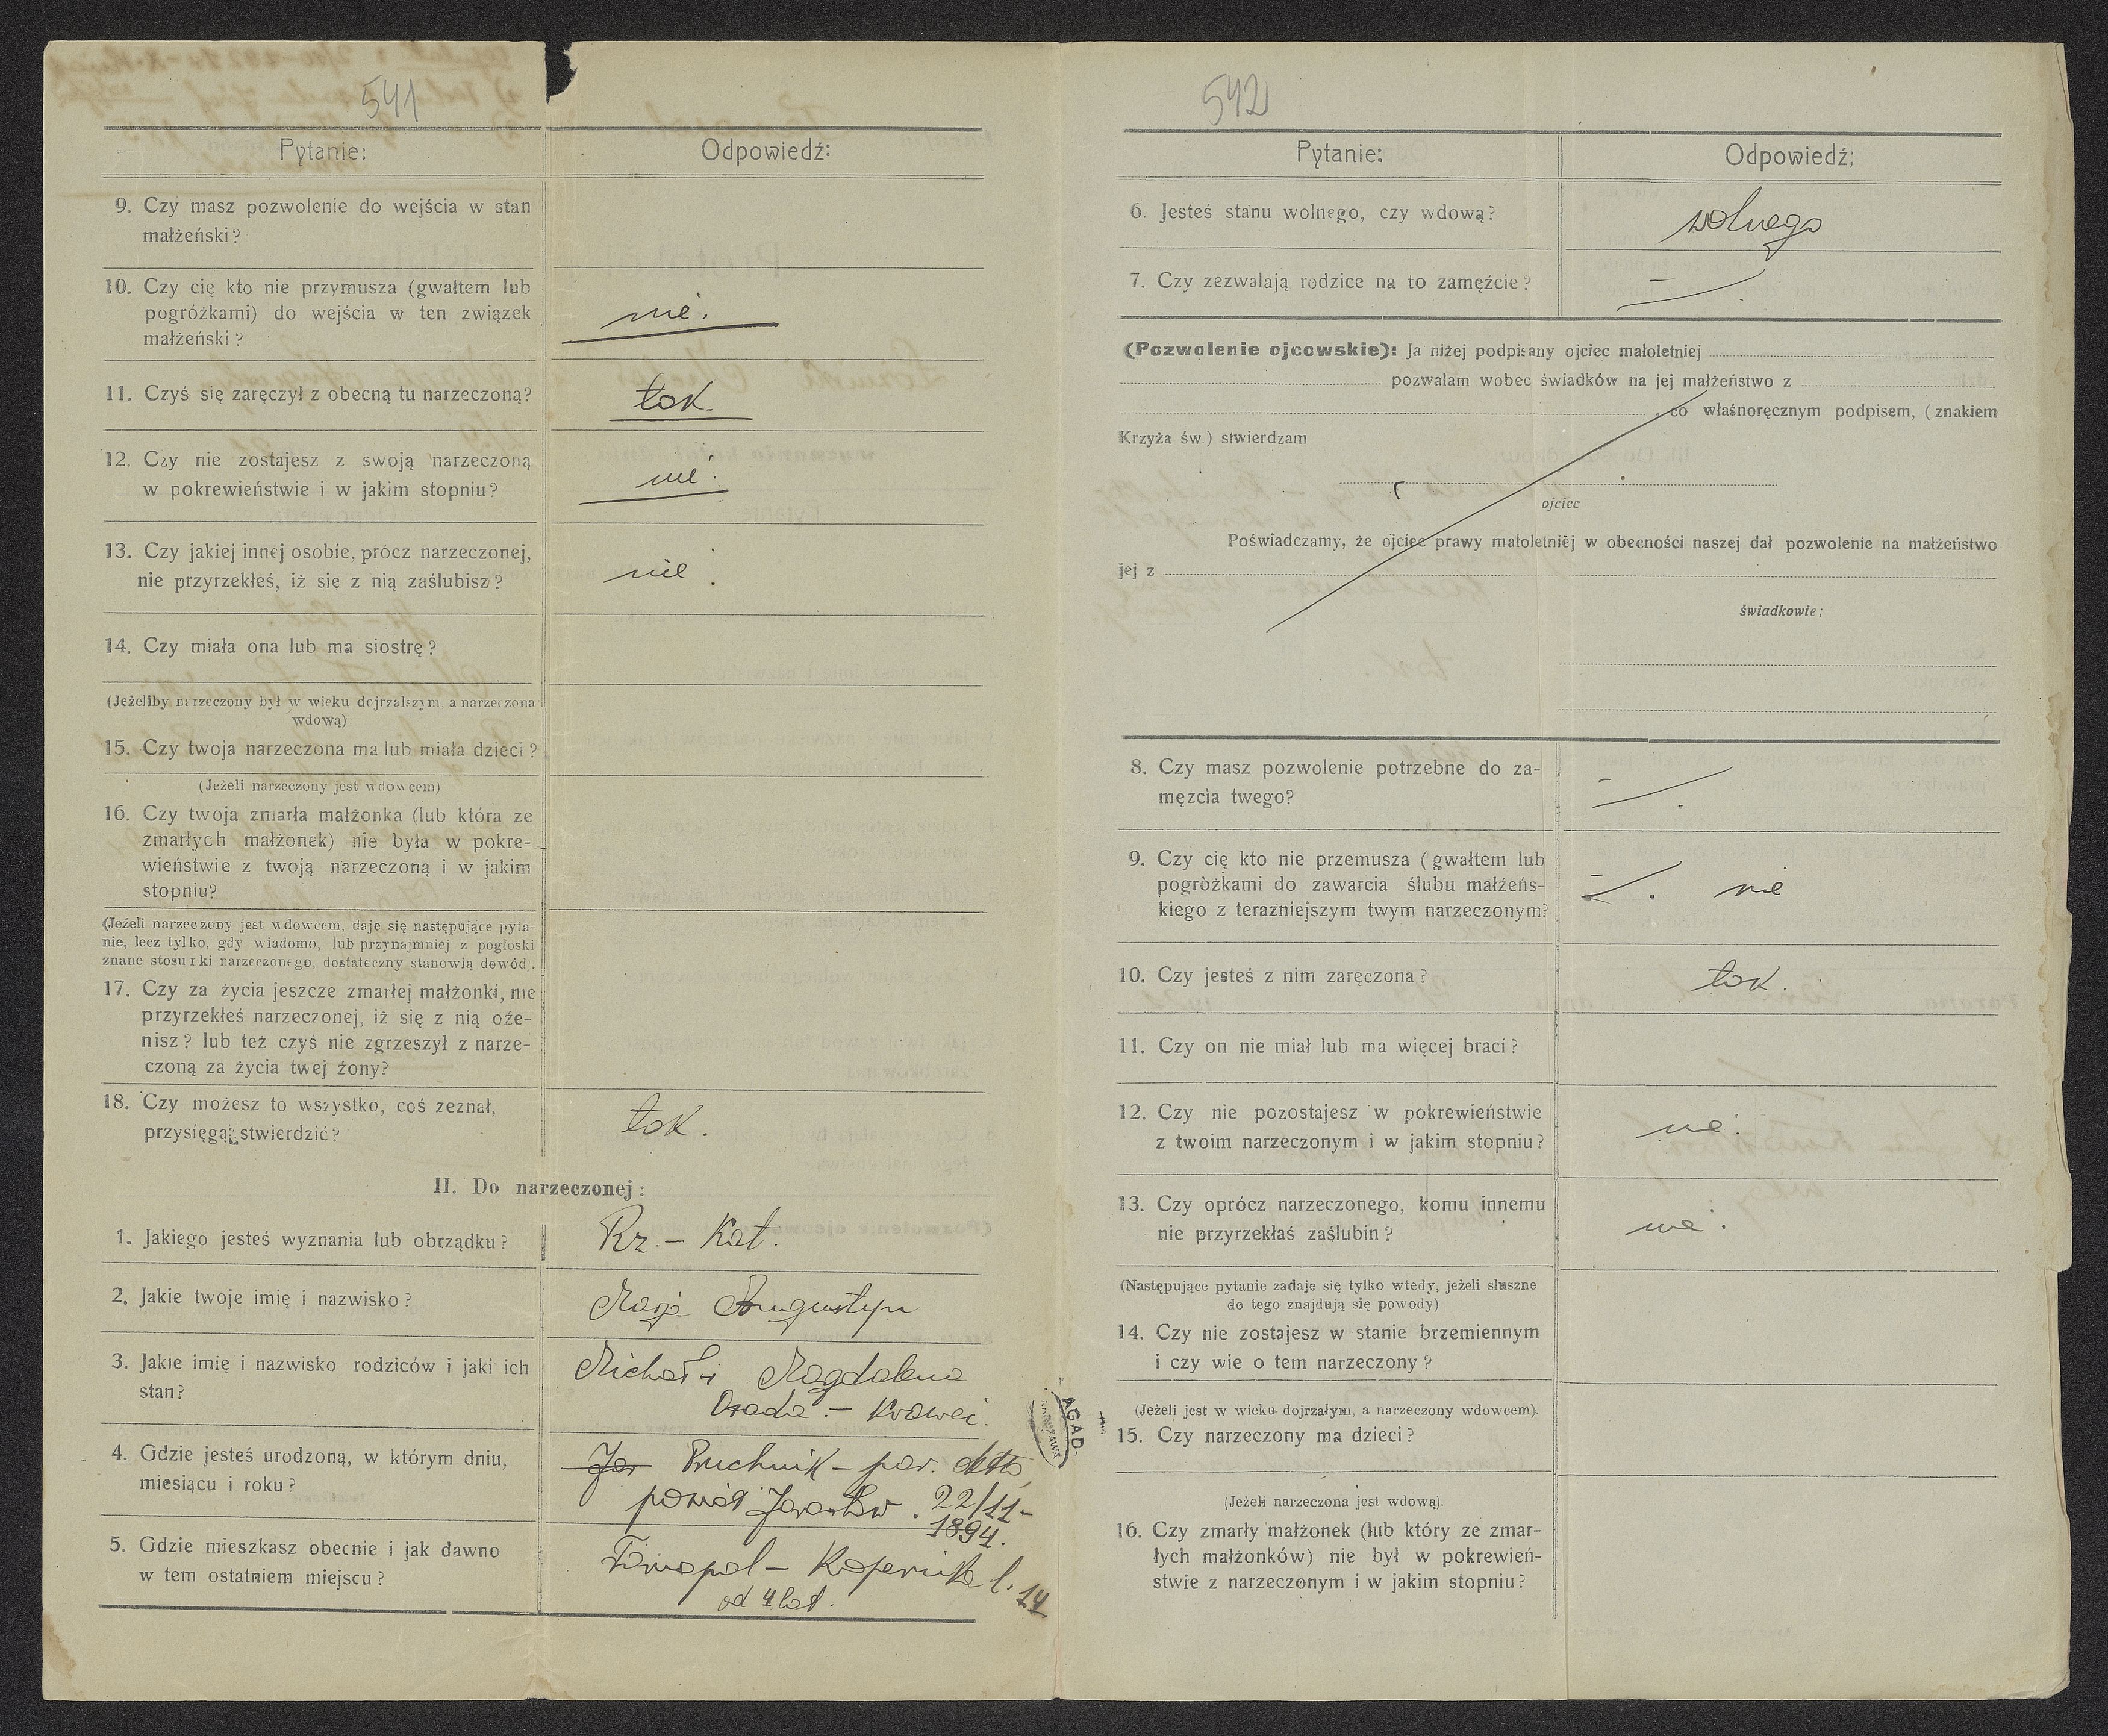 541
Pytanie:
Odpowiedź:
9. Czy masz pozwolenie do wejścia w stan
małżeński?
10. Czy cię kto nie przymusza (gwałtem lub
pogróżkami) do wejścia w ten związek
małżeński?
nie.
11. Czyś się zaręczył z obecną tu narzeczoną?
tak.
12. Czy nie zostajesz z swoją narzeczoną
w pokrewieństwie i w jakim stopniu?
nie.
13. Czy jakiej innej osobie, prócz narzeczonej,
nie przyrzekłeś, iż się z nią zaślubisz?
nie.
14. Czy miała ona lub ma siostrę?
(Jeżeliby narzeczony był w wieku dojrzalszym, a narzeczona
wdową)
15. Czy twoja narzeczona ma lub miała dzieci?
(Jeżeli narzeczony jest wdowcem)
16. Czy twoja zmarła małżonka (lub która ze
zmarłych małżonek) nie była w pokre-
wieństwie z twoją narzeczoną i w jakim
stopniu?
(Jeżeli narzeczony jest wdowcem, daje się następujące pyta-
nie, lecz tylko, gdy wiadomo, lub przynajmniej z pogłoski
znane stosunki narzeczonego, dostateczny stanowią dowód).
17. Czy za życia jeszcze zmarłej małżonki, nie
przyrzekłeś narzeczonej, iż się z nią oże-
nisz? lub też czyś nie zgrzeszył z narze-
czoną za życia twej żony?
18. Czy możesz to wszystko, coś zeznał,
przysięgą stwierdzić?
tak.
II. Do narzeczonej:
1. Jakiego jesteś wyznania lub obrządku?
Rz. - Kat.
2. Jakie twoje imię i nazwisko?
Marja Augustyn
3. Jakie imię i nazwisko rodziców i jaki ich
stan?
Michał i Magdalena
Osada - Krawei.
4. Gdzie jesteś urodzoną, w którym dniu,
miesiącu i roku?
Jar Pruchnik - par. dtto,
powiat Jarosław. 22/11-
1894.
5. Gdzie mieszkasz obecnie i jak dawno
w tem ostatniem miejscu?
Tarnopol - Kopernika l. 14
od 4 lat.
AGAD
WARSZAWA
542
Pytanie:
Odpowiedź;
6. Jesteś stanu wolnego, czy wdową?
wolnego
7. Czy zezwalają rodzice na to zamęźcie?
(Pozwolenie ojcowskie): Ja niżej podpisany ojciec małoletniej
pozwalam wobec świadków na jej małżeństwo z
, co właśnoręcznym podpisem, (znakiem
Krzyża św.) stwierdzam
ojciec
Poświadczamy, że ojciec prawy małoletniej w obecności naszej dał pozwolenie na małżeństwo
jej z
świadkowie;
8. Czy masz pozwolenie potrzebne do za-
męzcia twego?
9. Czy cię kto nie przemusza (gwałtem lub
pogróżkami do zawarcia ślubu małżeńs-
kiego z terazniejszym twym narzeczonym?
nie
10. Czy jesteś z nim zaręczona?
tak.
11. Czy on nie miał lub ma więcej braci?
12. Czy nie pozostajesz w pokrewieństwie
z twoim narzeczonym i w jakim stopniu?
nie.
13. Czy oprócz narzeczonego, komu innemu
nie przyrzekłaś zaślubin?
nie.
(Następujące pytanie zadaje się tylko wtedy, jeżeli słuszne
do tego znajdują się powody)
14. Czy nie zostajesz w stanie brzemiennym
i czy wie o tem narzeczony?
(Jeżeli jest w wieku dojrzałym, a narzeczony wdowcem).
15. Czy narzeczony ma dzieci?
(Jeżeli narzeczona jest wdową).
16. Czy zmarły małżonek (lub który ze zmar-
łych małżonków) nie był w pokrewień-
stwie z narzeczonym i w jakim stopniu?